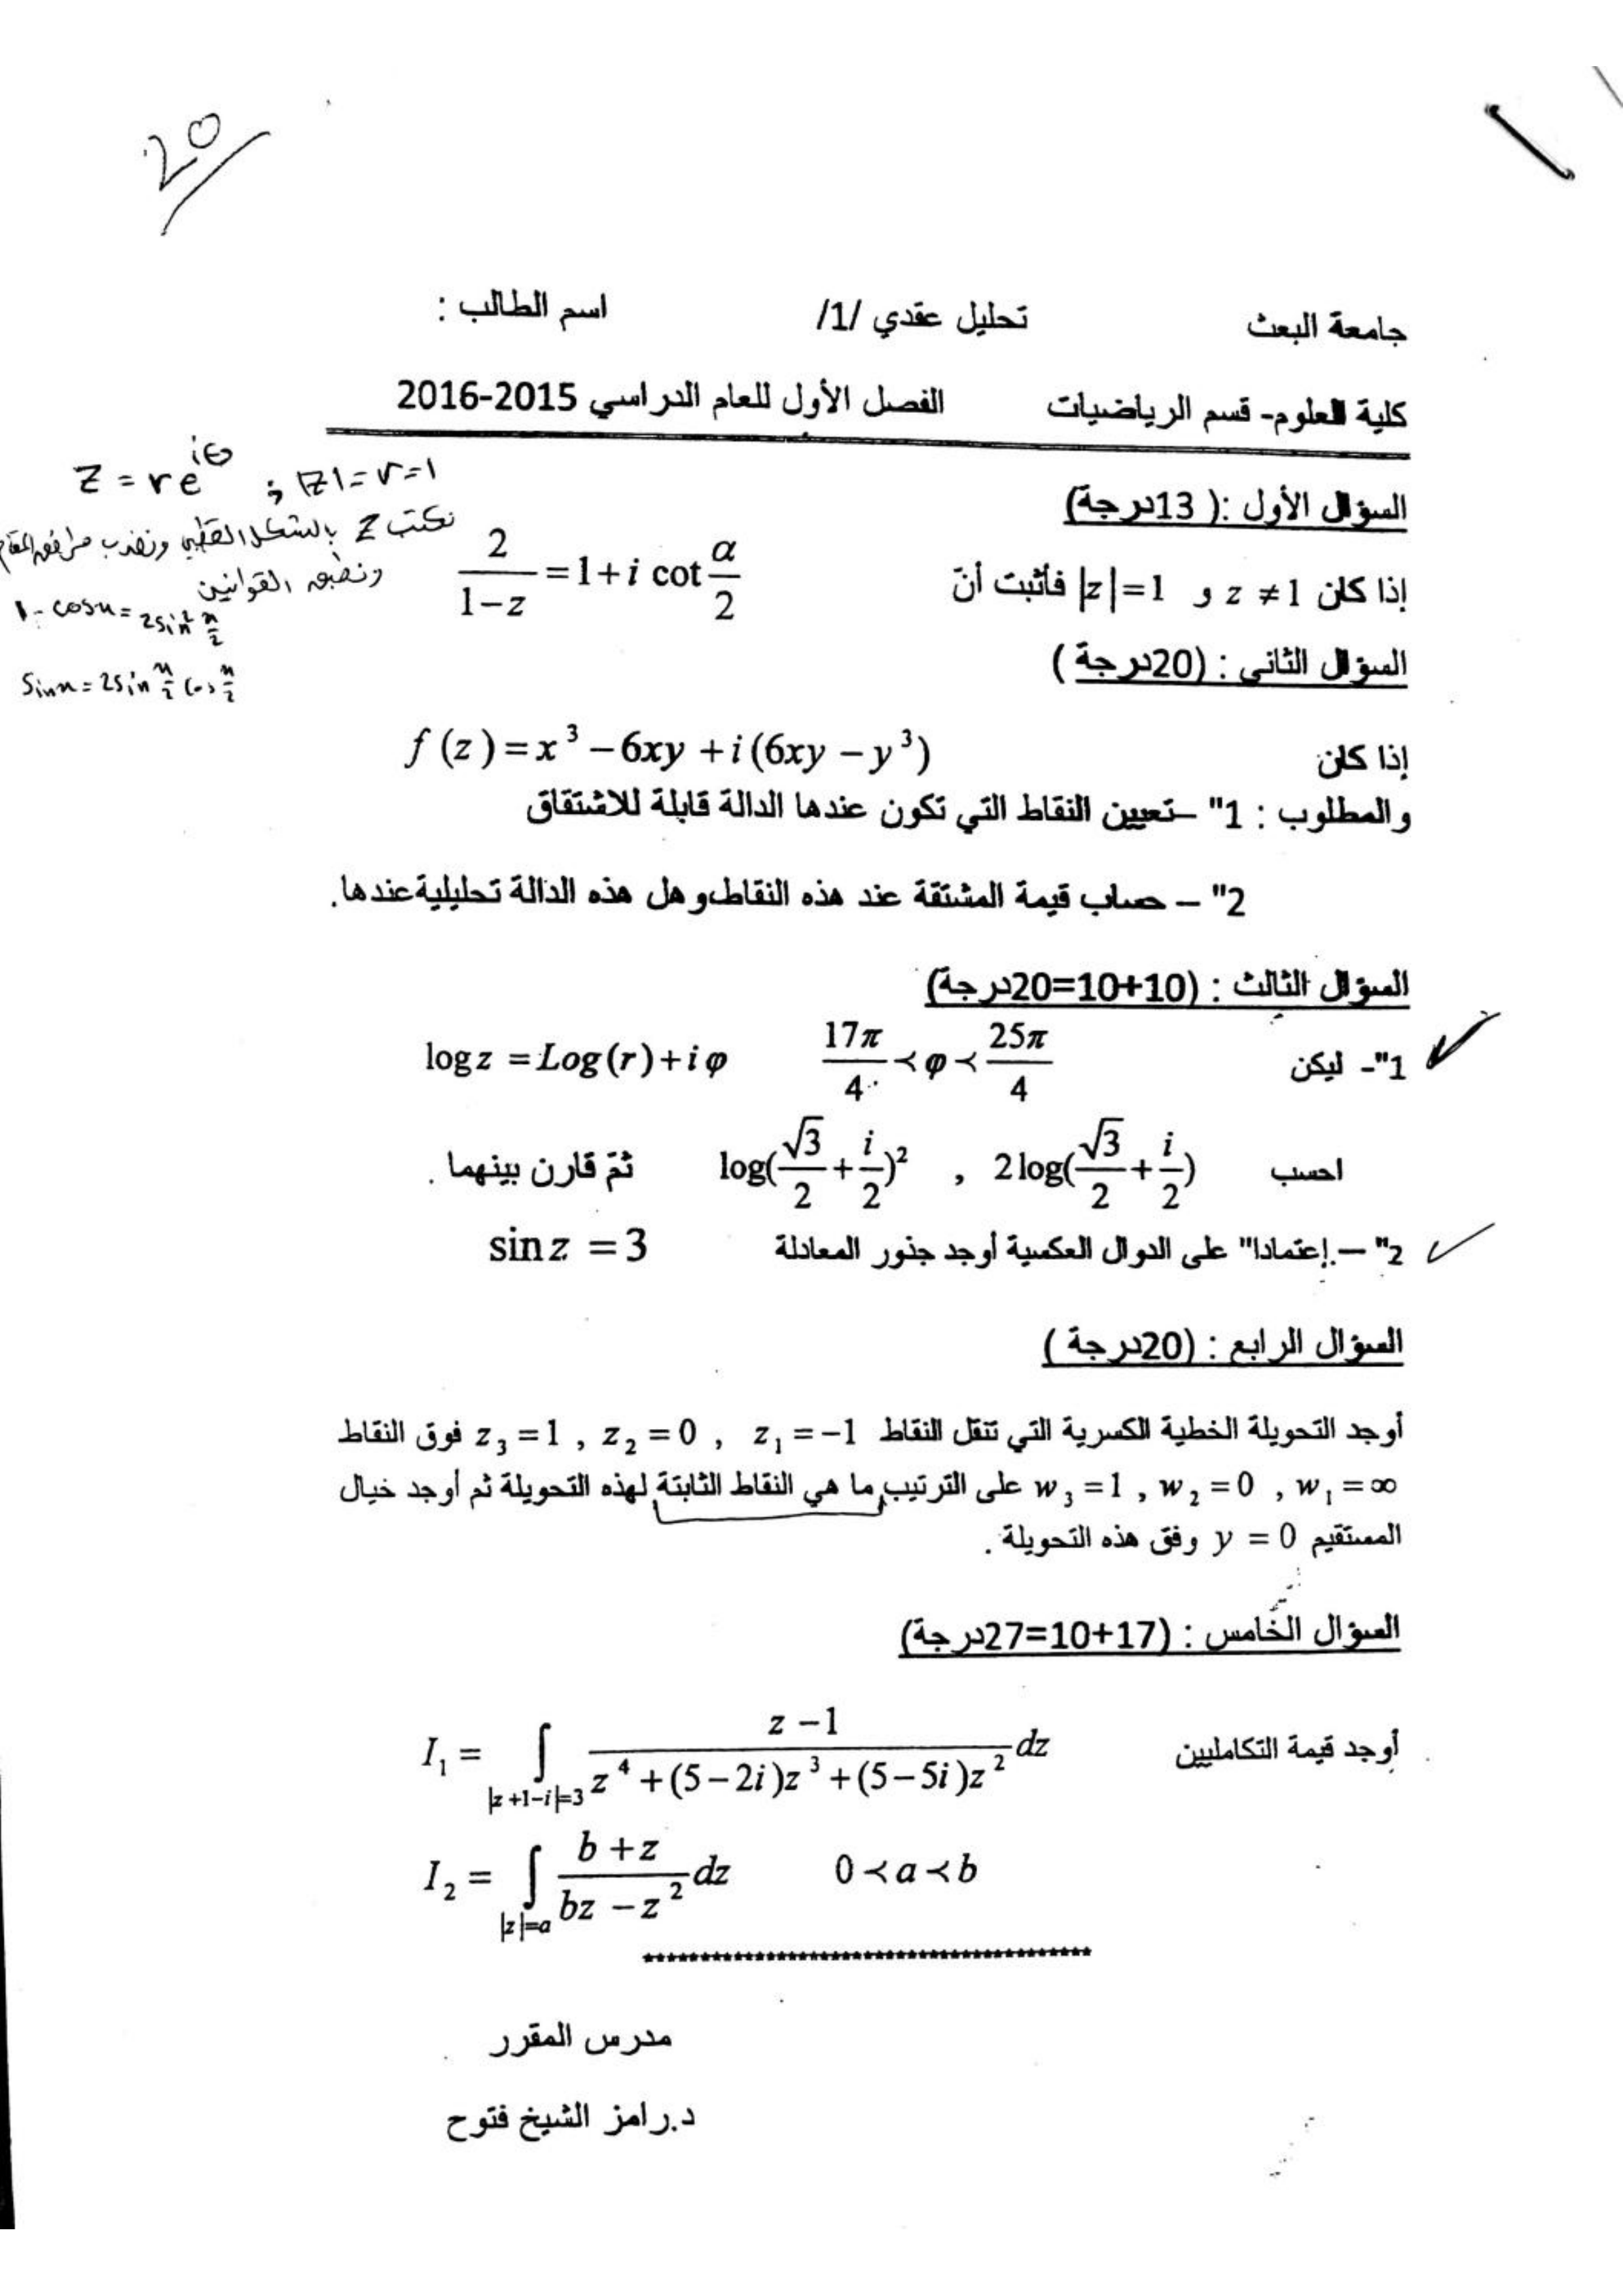 20
جامعة البعث تحليل عقدي /1/ اسم الطالب :
كلية العلوم- قسم الرياضيات الفصل الأول للعام الدراسي 2015-2016
z = re^{iθ} ; |z| = r = 1
نكتب z بالشكل القطبي ونضرب مرافق المقام
ونطبق القوانين
1 - cos x = 2 sin² x/2
sin x = 2 sin x/2 cos x/2
السؤال الأول :( 13درجة)
إذا كان z ≠ 1 و |z| = 1 فأثبت أنّ 2/(1-z) = 1 + i cot α/2
السؤال الثاني : (20درجة )
إذا كان f (z) = x³ - 6xy + i (6xy - y³)
والمطلوب : 1" –تعيين النقاط التي تكون عندها الدالة قابلة للاشتقاق
2" – حساب قيمة المشتقة عند هذه النقاط وهل هذه الدالة تحليلية عندها.
السؤال الثالث : (10+10=20درجة)
1"- ليكن log z = Log (r) + i φ 17π/4 ≺ φ ≺ 25π/4
احسب 2 log(√3/2 + i/2) , log(√3/2 + i/2)² ثمّ قارن بينهما .
2" –.إعتمادا" على الدوال العكسية أوجد جذور المعادلة sin z = 3
السؤال الرابع : (20درجة )
أوجد التحويلة الخطية الكسرية التي تنقل النقاط z₁ = -1 , z₂ = 0 , z₃ = 1 فوق النقاط
w₁ = ∞ , w₂ = 0 , w₃ = 1 على الترتيب ما هي النقاط الثابتة لهذه التحويلة ثم أوجد خيال
المستقيم y = 0 وفق هذه التحويلة .
السؤال الخامس : (17+10=27درجة)
أوجد قيمة التكامليين I₁ = ∫_{|z+1-i|=3} (z - 1)/(z⁴ + (5 - 2i)z³ + (5 - 5i)z²) dz
I₂ = ∫_{|z|=a} (b + z)/(bz - z²) dz 0 ≺ a ≺ b
***************************************
مدرس المقرر
د.رامز الشيخ فتوح